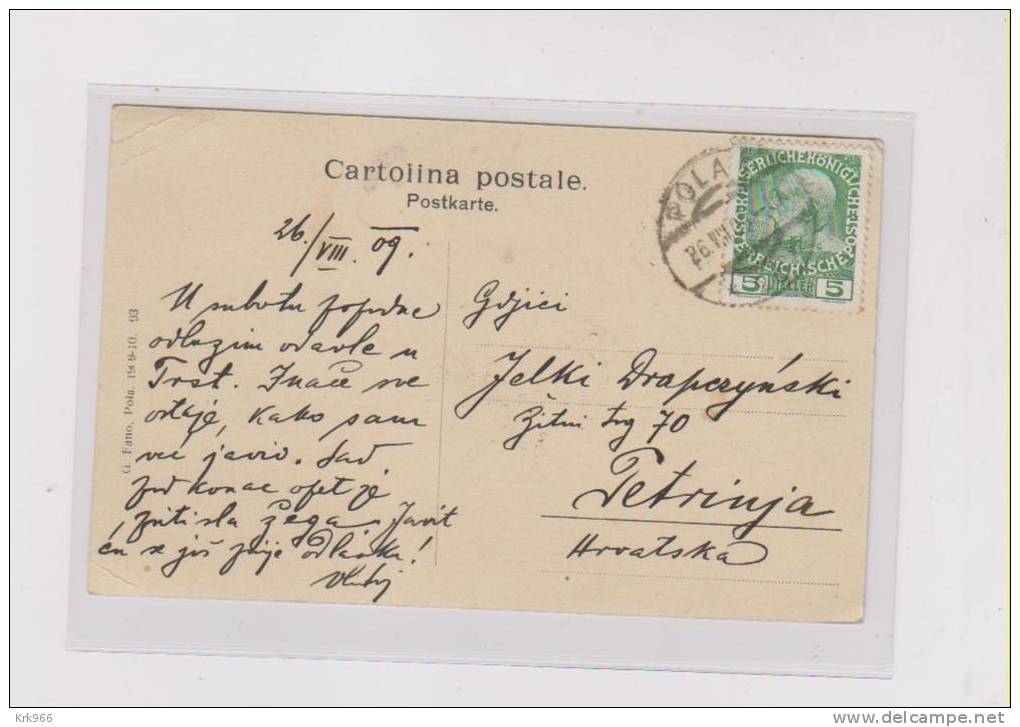 Cartolina postale.
Postkarte.
26./VIII. 09.
U subotu popodne
odlazim odavle u
Trst. Inače sve
ostaje, kako sam
već javio. Sad
pod konac opet je
pritisla žega. Javit
ću se još prije odlaska!
Gdjici
Jelki Drapczyński
Žitni trg 70
Petrinja
Hrvatska
G. Fano, Pola. 1909-10. 93
POLA
26.VIII.
KAISERLICHE KÖNIGLICHE
ÖSTERREICHISCHE POST
5 HELLER 5
Krk966
www.delcampe.net